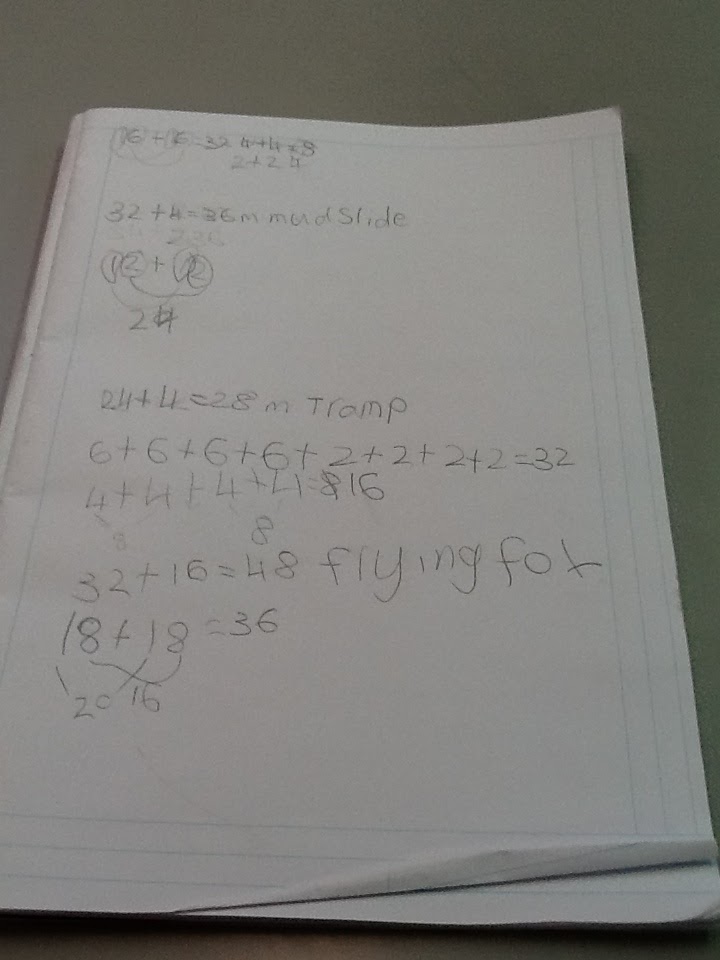 16 + 16 = 32 4+4=8
2+2 4
32 + 4 = 36 m mud Slide
12 + 12
24
24+4=28 m Tramp
6+6+6+6+2+2+2+2=32
4+4+4+4=816
8 8
32+16=48 flying fox
18+18=36
20 16